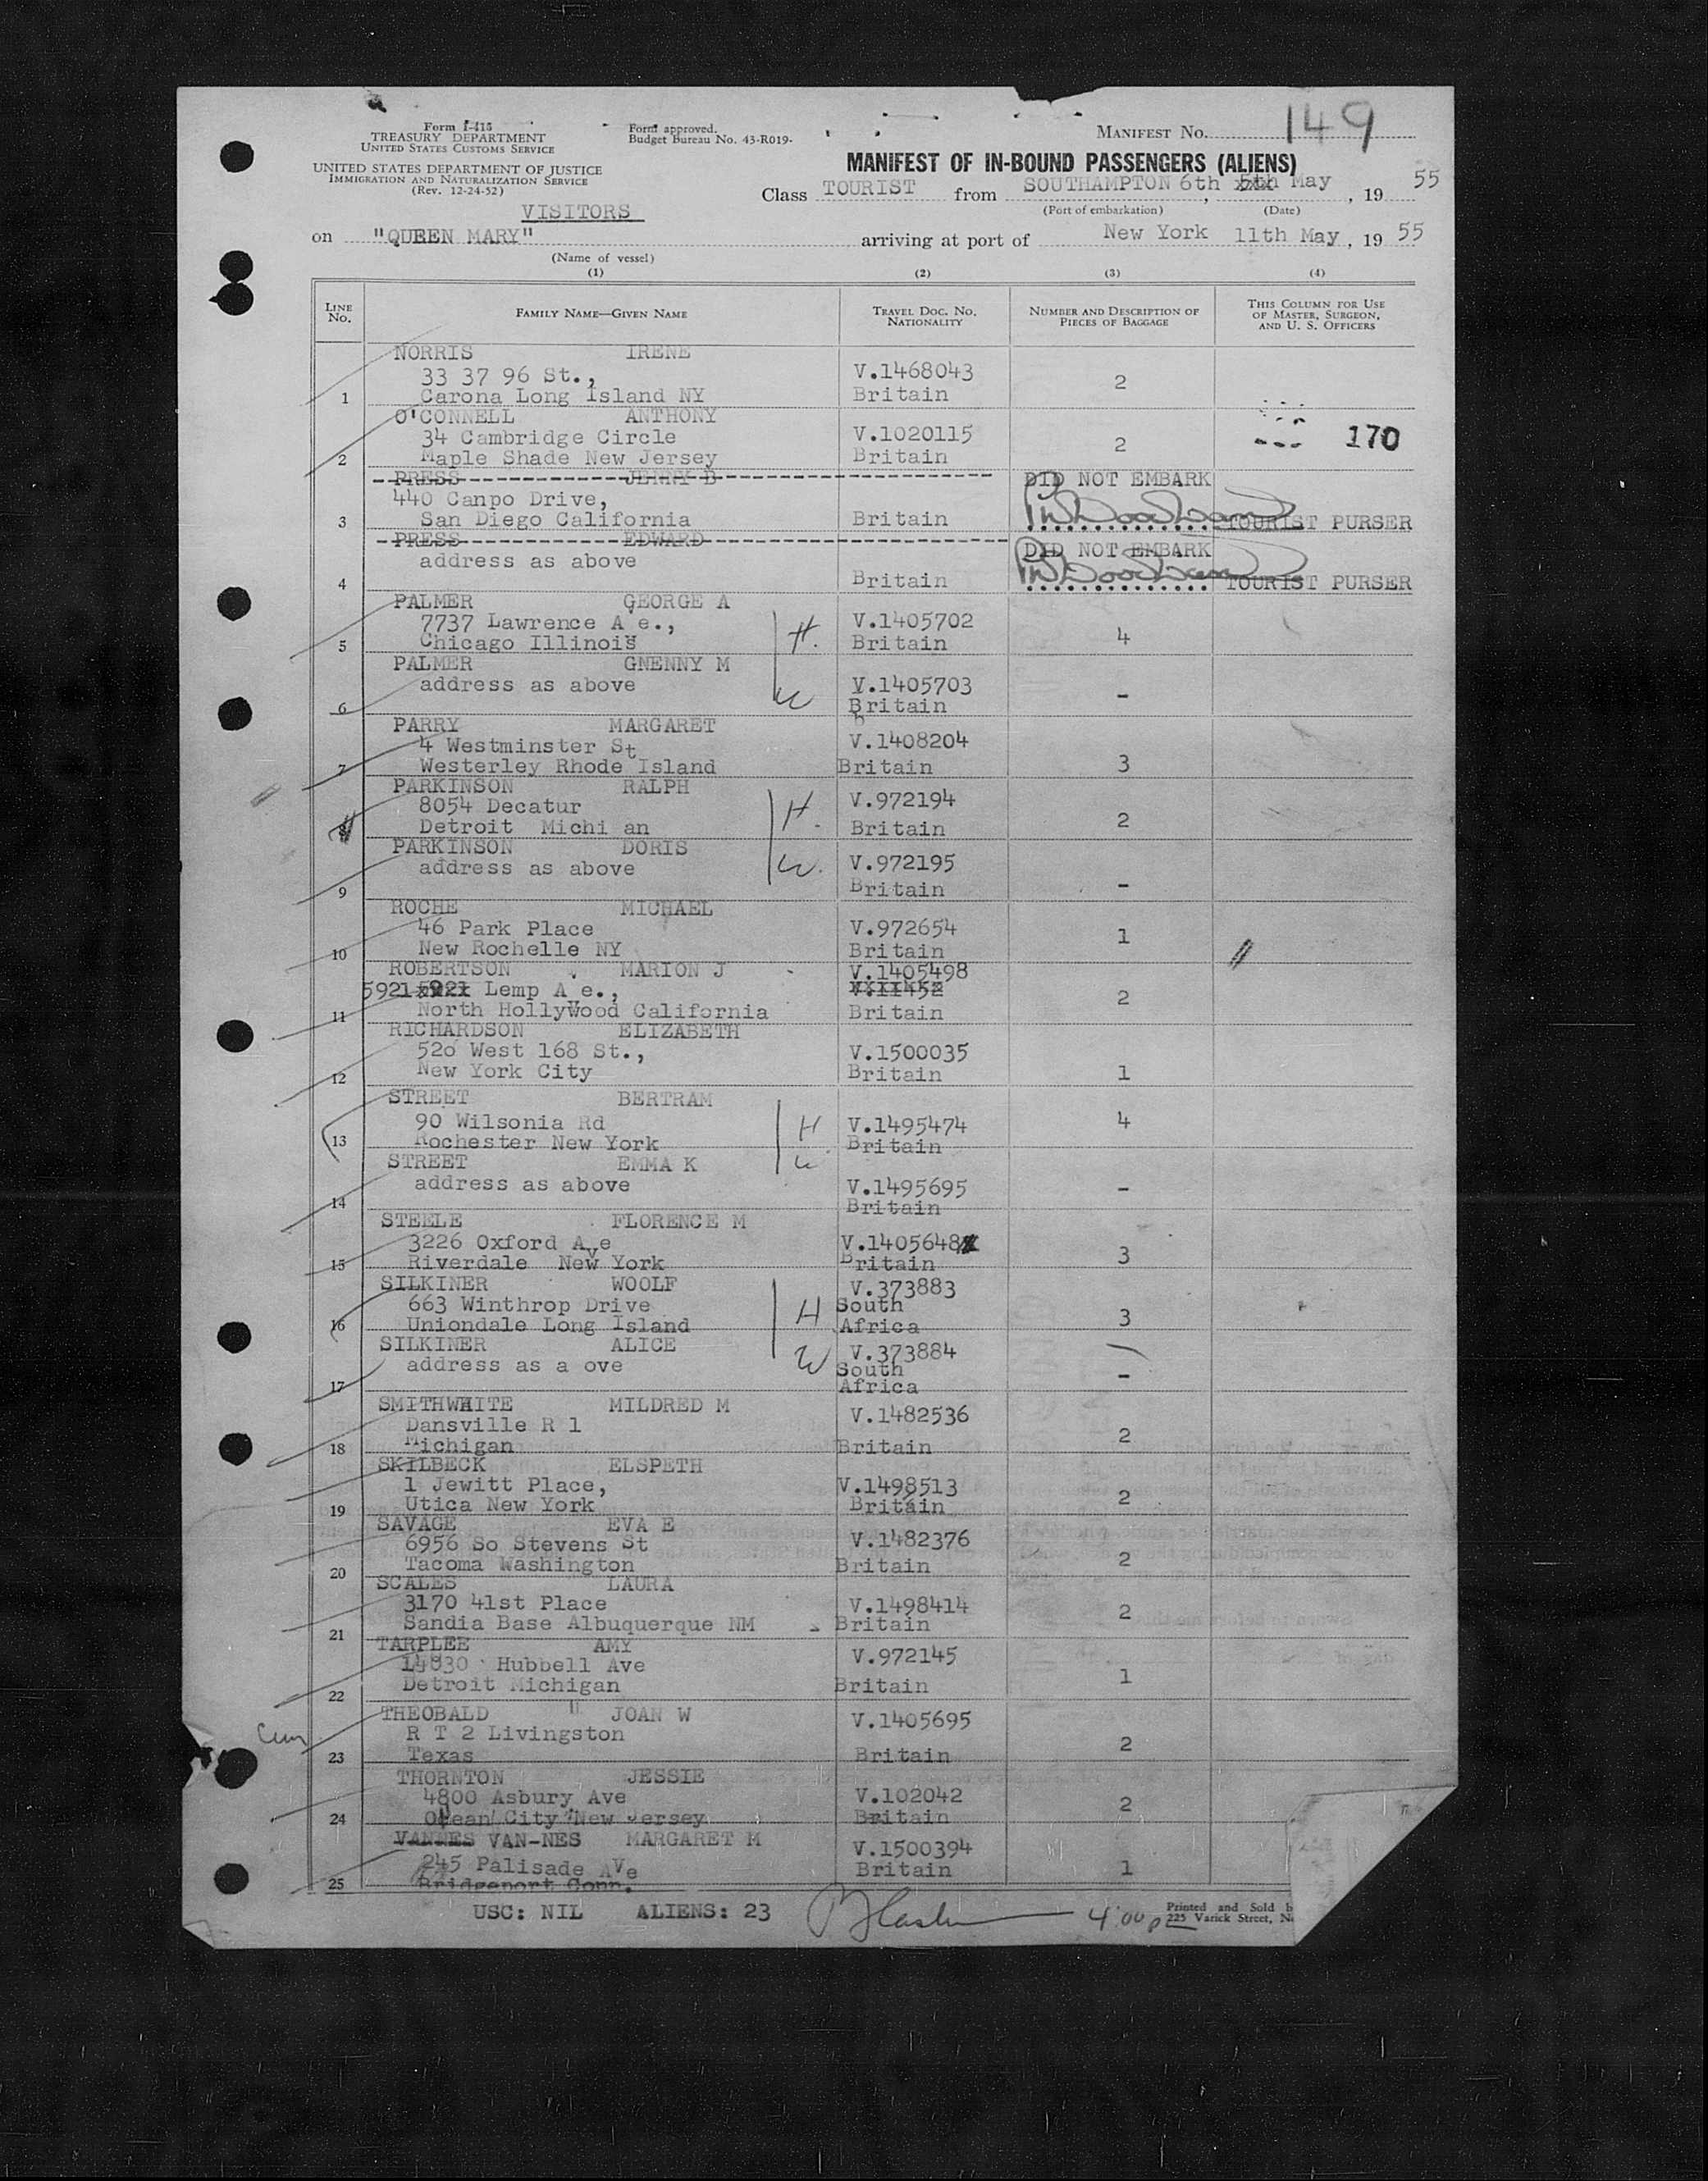 149
Form I-415
TREASURY DEPARTMENT
UNITED STATES CUSTOMS SERVICE
Form approved.
Budget Bureau No. 43-R019-
MANIFEST No.
UNITED STATES DEPARTMENT OF JUSTICE
IMMIGRATION AND NATURALIZATION SERVICE
(Rev. 12-24-52)
MANIFEST OF IN-BOUND PASSENGERS (ALIENS)
Class TOURIST from SOUTHAMPTON 6th 5th May, 19 55
(Port of embarkation) (Date)
VISITORS
on "QUEEN MARY" arriving at port of New York 11th May, 19 55
(Name of vessel)
(1) (2) (3) (4)
LINE No. FAMILY NAME—GIVEN NAME TRAVEL DOC. NO. NATIONALITY NUMBER AND DESCRIPTION OF PIECES OF BAGGAGE THIS COLUMN FOR USE OF MASTER, SURGEON, AND U. S. OFFICERS
NORRIS IRENE
33 37 96 St., V.1468043 2
1 Carona Long Island NY Britain
O'CONNELL ANTHONY
34 Cambridge Circle V.1020115 2 170
2 Maple Shade New Jersey Britain
PRESS JENNY B DID NOT EMBARK
440 Canpo Drive,
3 San Diego California Britain TOURIST PURSER
PRESS EDWARD DID NOT EMBARK
address as above
4 Britain TOURIST PURSER
PALMER GEORGE A
7737 Lawrence A e., H. V.1405702 4
5 Chicago Illinois Britain
PALMER GNENNY M
address as above W V.1405703 -
6 Britain
PARRY MARGARET
4 Westminster St V.1408204
7 Westerley Rhode Island Britain 3
PARKINSON RALPH
8054 Decatur H. V.972194 2
8 Detroit Michi an Britain
PARKINSON DORIS
address as above W. V.972195
9 Britain -
ROCHE MICHAEL
46 Park Place V.972654 1
10 New Rochelle NY Britain
ROBERTSON MARION J V.1405498
5921 5921 Lemp A e., V.11452 2
11 North Hollywood California Britain
RICHARDSON ELIZABETH
520 West 168 St., V.1500035
12 New York City Britain 1
STREET BERTRAM
90 Wilsonia Rd H V.1495474 4
13 Rochester New York Britain
STREET EMMA K W.
address as above V.1495695 -
14 Britain
STEELE FLORENCE M
3226 Oxford Ave V.1405648 3
15 Riverdale New York Britain
SILKINER WOOLF V.373883
663 Winthrop Drive H South 3
16 Uniondale Long Island Africa
SILKINER ALICE V.373884
address as a ove W South -
17 Africa
SMITHWAITE MILDRED M V.1482536
Dansville R 1 2
18 Michigan Britain
SKILBECK ELSPETH
1 Jewitt Place, V.1498513 2
19 Utica New York Britain
SAVAGE EVA E
6956 So Stevens St V.1482376 2
20 Tacoma Washington Britain
SCALES LAURA
3170 41st Place V.1498414 2
21 Sandia Base Albuquerque NM Britain
TARPLEE AMY V.972145
14830 Hubbell Ave 1
22 Detroit Michigan Britain
THEOBALD JOAN W V.1405695
R T 2 Livingston 2
23 Texas Britain
THORNTON JESSIE
4800 Asbury Ave V.102042 2
24 Ocean City New Jersey Britain
VANNES VAN-NES MARGARET M V.1500394
245 Palisade AVe Britain 1
25 Bridgeport Conn.
USC: NIL ALIENS: 23 4:00 p
Printed and Sold b
225 Varick Street, N